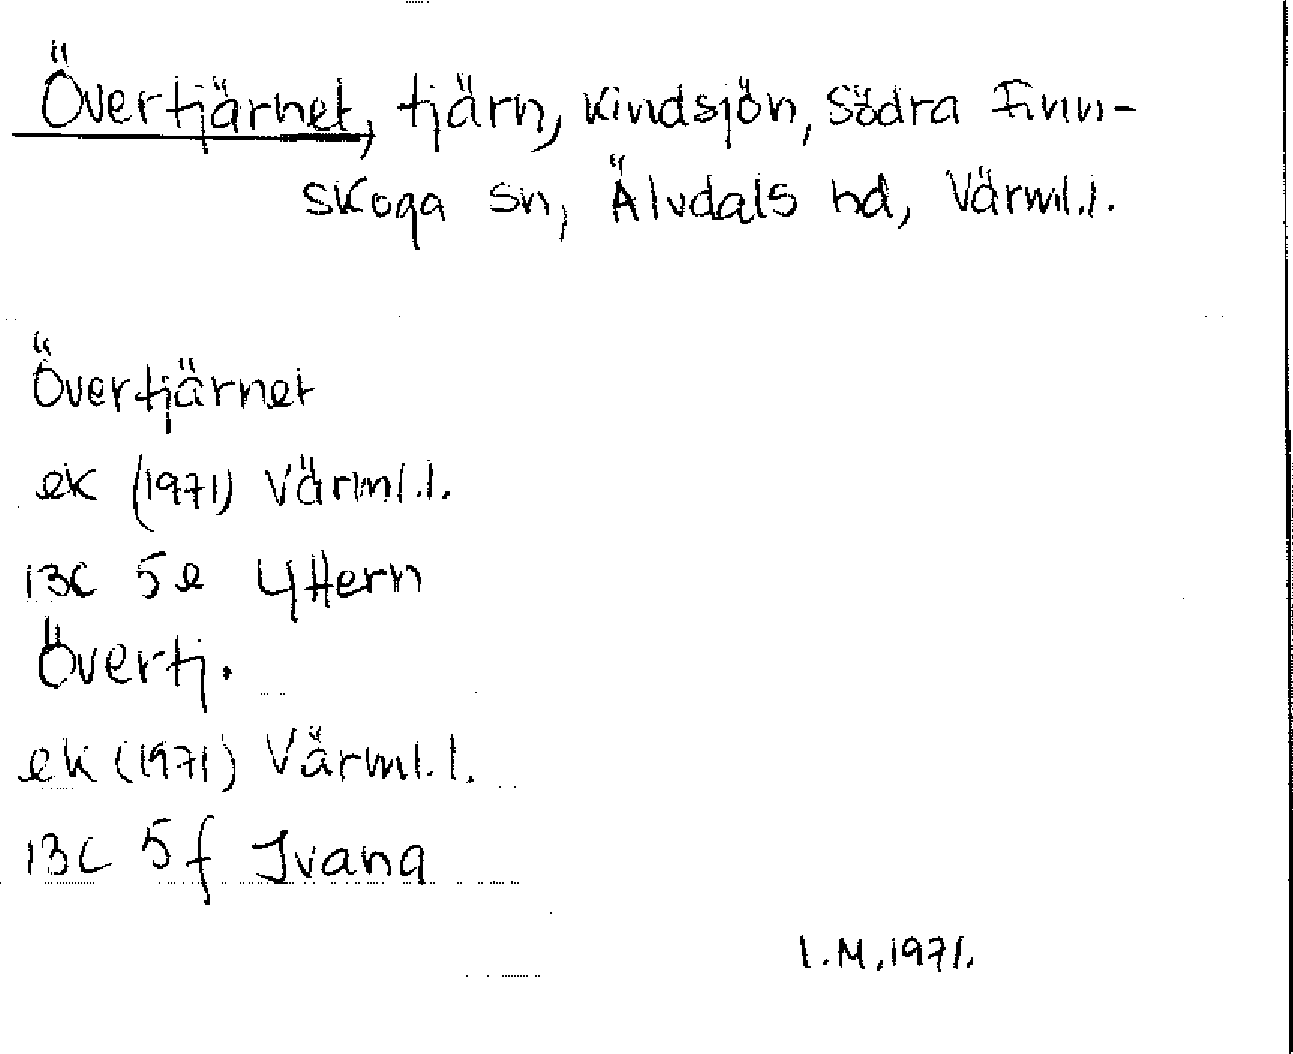 Övertjärnet, tjärn, Kindsjön, Södra Finn-
skoga sn, Älvdals hd, Värml.l.
Övertjärnet
ek (1971) Värml.l.
13C 5e Yttern
Övertj.
ek (1971) Värml.l.
13C 5f Ivana
I.M.1971.